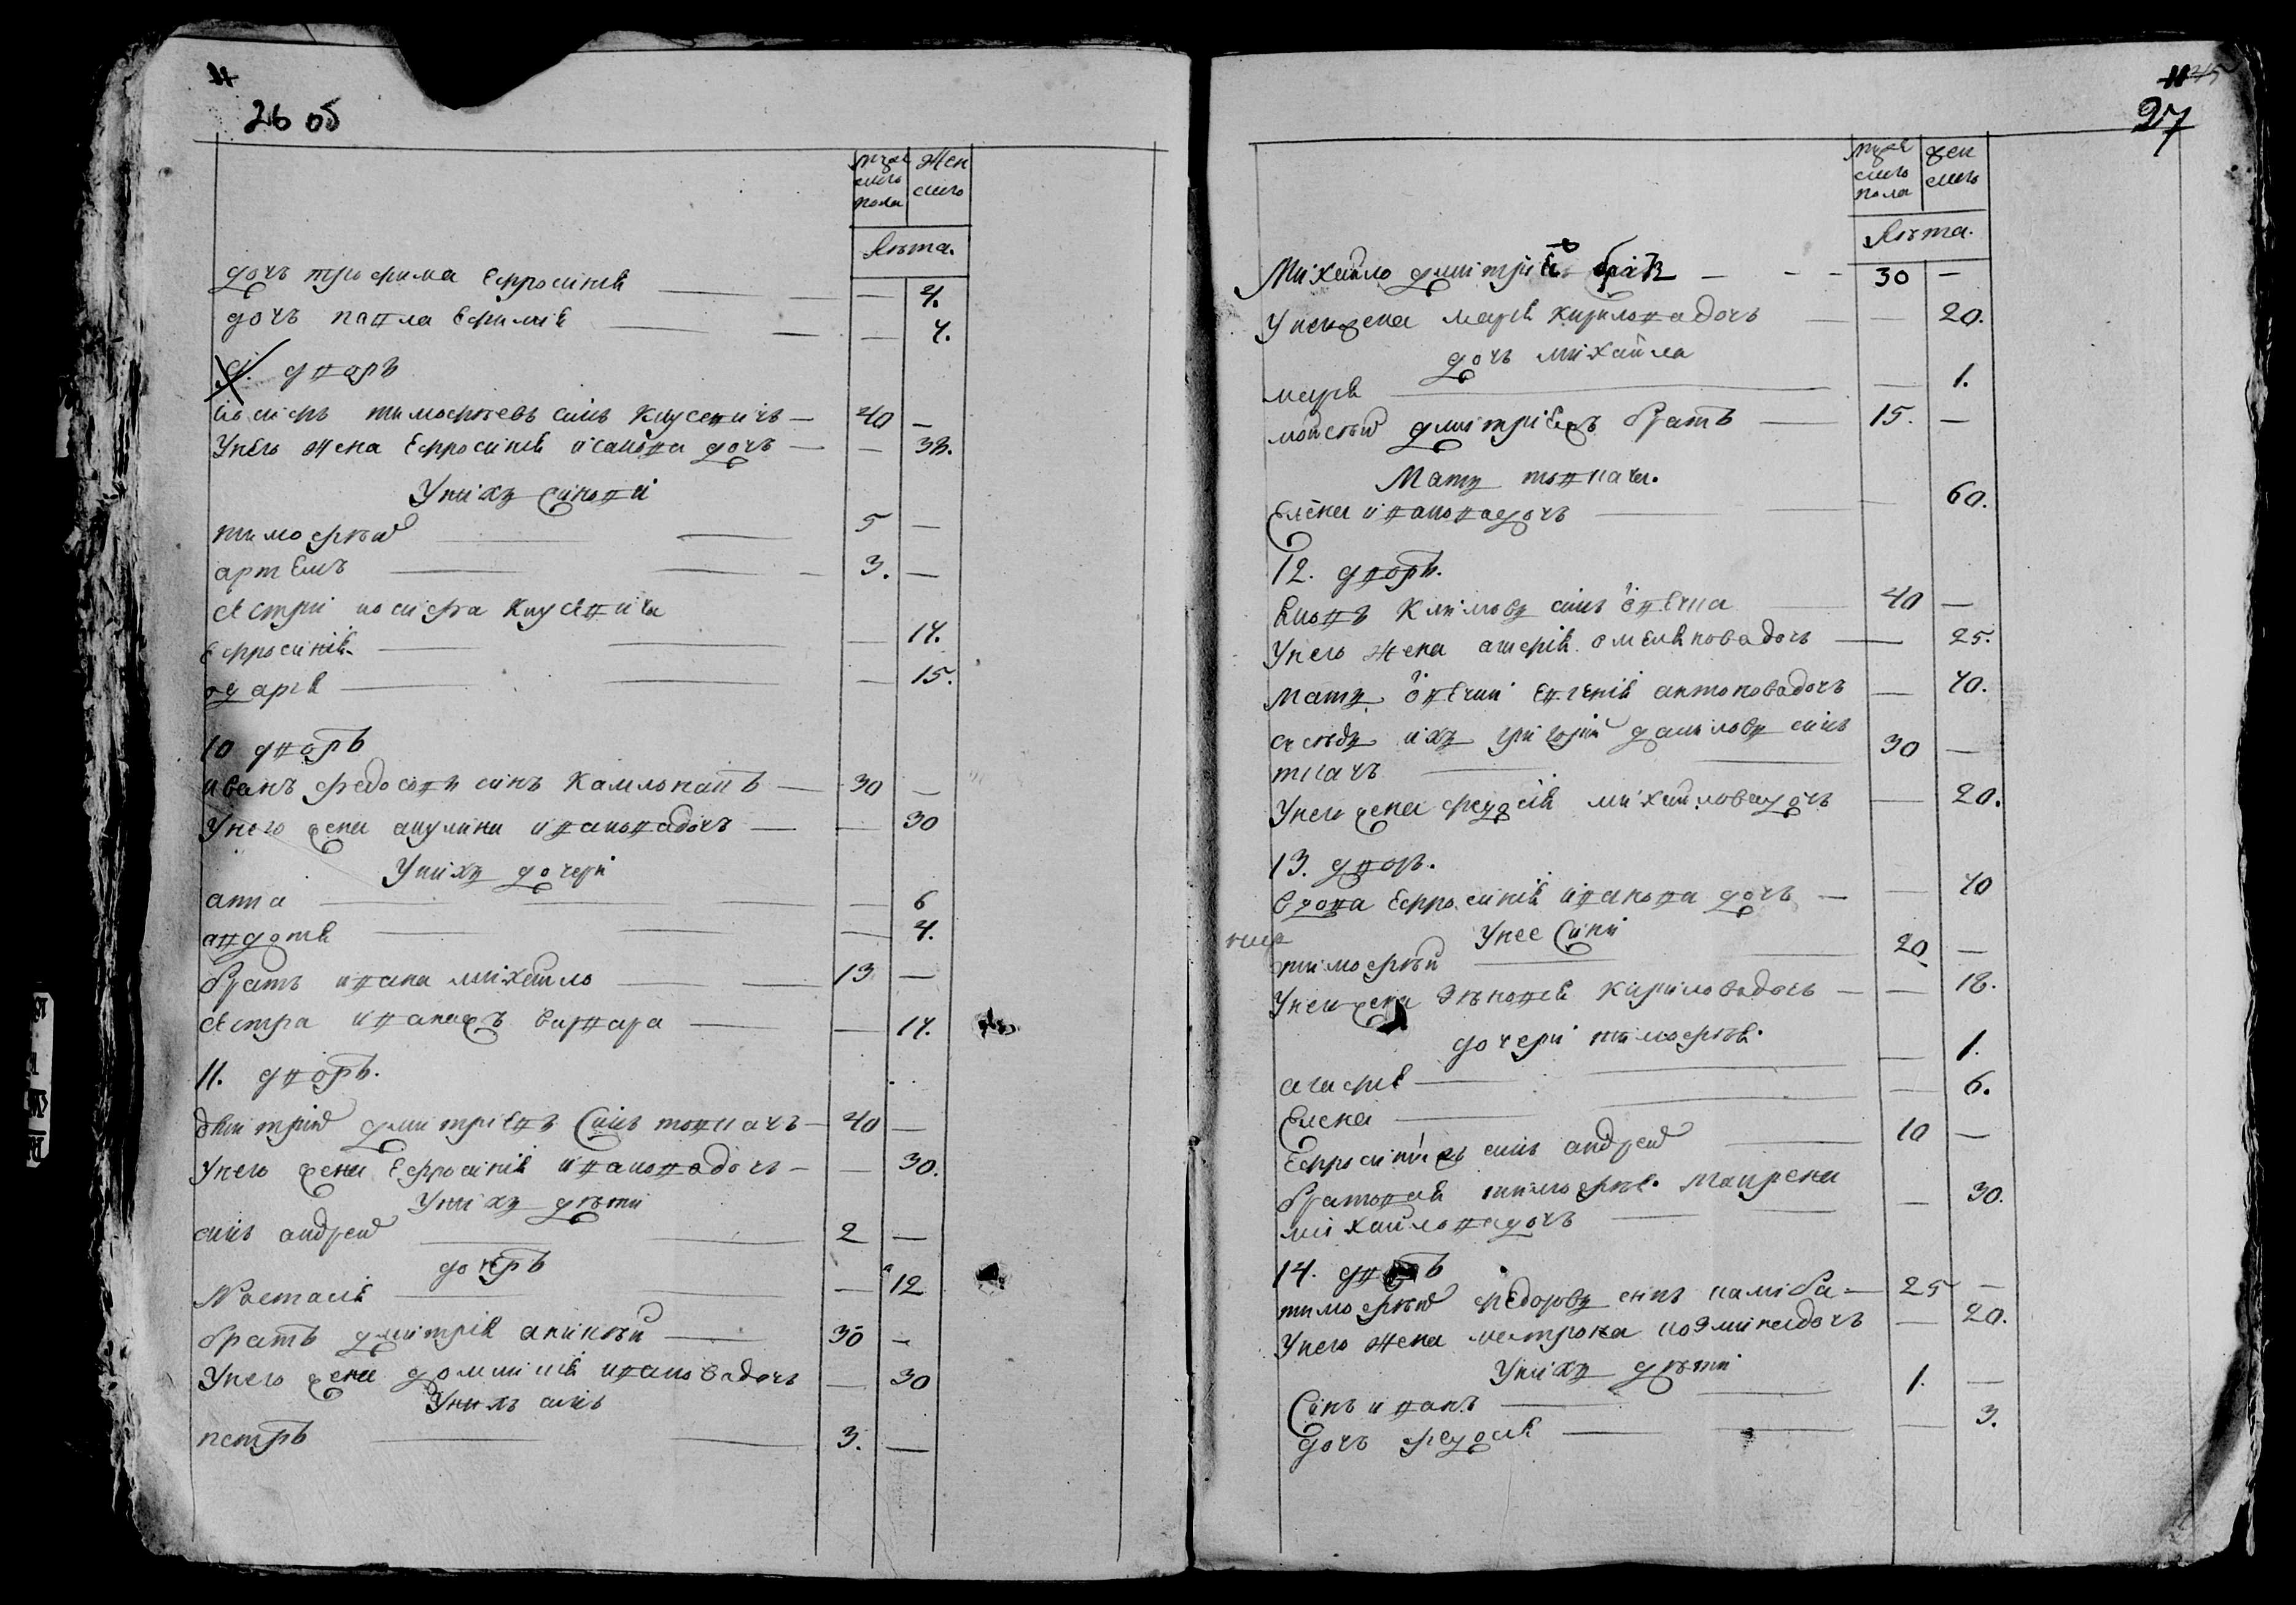 26 об
муж
ского
пола
жен
ского
лѣта.
дочь трофима Ефросинія — 4.
дочь павла Ефимія — 4.
9. дворъ
иосифъ тимофѣевъ синъ — 40 —
У него жена Ефросинія исакова дочь — 38.
У нихъ синови
тимофѣй 5 —
артемъ 3. —
сестри иосифа
Ефросинія — 14.
одарія — 15.
10 дворъ
иванъ федосовъ синъ — 30 —
У него жена акулина иванова дочь — 30
У нихъ дочери
анна — 6
авдотія — 4.
братъ ивана михайло 13 —
сестра иванаже варвара — 14.
11. дворъ.
дмитрій дмитріевъ Синъ товкачъ — 40 —
У него жена Ефросинія иванова дочь — 30.
У нихъ дѣти
синъ андрей 2 —
дочеръ
Настасія — 12
братъ дмитрія 30 —
У него жена домникія иванова дочь — 30
У нихъ синъ
петръ 3. —
27
муж
ского
пола
жен
ского
лѣта.
Михайло дмитріевъ братъ — 30 —
У него жена марія кирилова дочь — 20.
дочь михайла
марія — 1.
мойсѣй дмитріевъ братъ — 15. —
Мать товкача.
Елена иванова дочь — 60.
12. дворъ.
Климовъ синъ 40 —
У него жена агафія омеляновадочь — 25.
мать Евгенія антоновадочь — 40.
сусѣдъ ихъ григорій даниловъ синъ
ткачъ 30 —
У него жена федосія михайловадочь — 20.
13. дворъ.
вдова Ефросинія иванова дочь — 40
У нее Сини
тимофѣй 20 —
У него жена зѣновія кириловадочь — 18.
дочери тимофѣя.
агафія — 1.
Елена — 6.
Ефросиніи синъ андрей 10 —
братовая тимофѣя. Маврена
михайловадочь — 30.
14. дворъ
тимофѣй федоровъ синъ — 25 —
У него жена матрона козминадочь — 20.
У нихъ дѣти
Синъ иванъ 1. —
дочь федосія — 3.